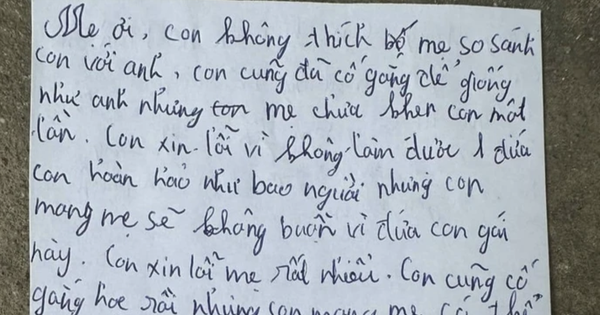 Mẹ ơi, con không thích bố mẹ so sánh
con với anh, con cũng đã cố gắng để giống
như anh nhưng con mẹ chưa khen con một
lần. Con xin lỗi vì không làm được 1 đứa
con hoàn hảo như bao người nhưng con
mong mẹ sẽ không buồn vì đứa con gái
này. Con xin lỗi mẹ rất nhiều. Con cũng cố
gắng học rồi nhưng con mong mẹ có thể